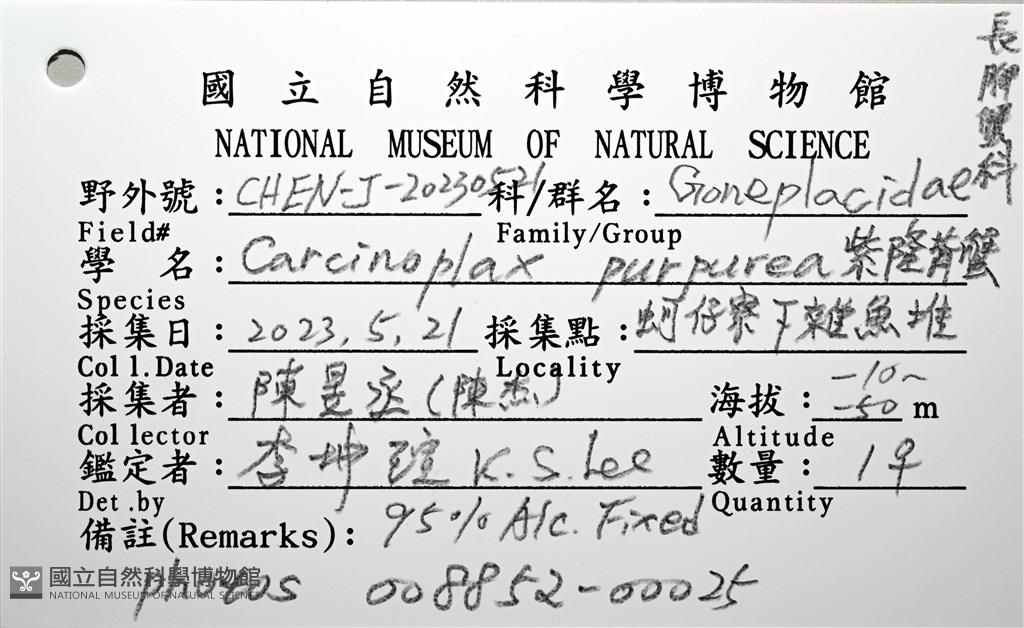 長腳蟹科
國立自然科學博物館
NATIONAL MUSEUM OF NATURAL SCIENCE
野外號：CHEN-J-20230521 科/群名：Goneplacidae
Field# Family/Group
學 名：Carcinoplax purpurea 紫隆背蟹
Species
採集日：2023.5.21 採集點：蚵仔寮下雜魚堆
Coll.Date Locality
採集者：陳昱丞(陳杰) 海拔：-10~-50 m
Collector Altitude
鑑定者：李坤瑄 K.S.Lee 數量：1♀
Det.by Quantity
備註(Remarks)：95% Alc. Fixed
photos 008852-00025
國立自然科學博物館
NATIONAL MUSEUM OF NATURAL SCIENCE